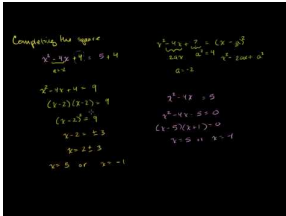 Completing the square
x² - 4x + 4 = 5 + 4
a = -2
x² - 4x + 4 = 9
(x-2)(x-2) = 9
(x-2)² = 9
x - 2 = ± 3
x = 2 ± 3
x = 5 or x = -1
x² - 4x + ? = (x - a)²
2ax a² 4 x² - 2ax + a²
a = -2
x² - 4x = 5
x² - 4x - 5 = 0
(x-5)(x+1) = 0
x = 5 or x = -1